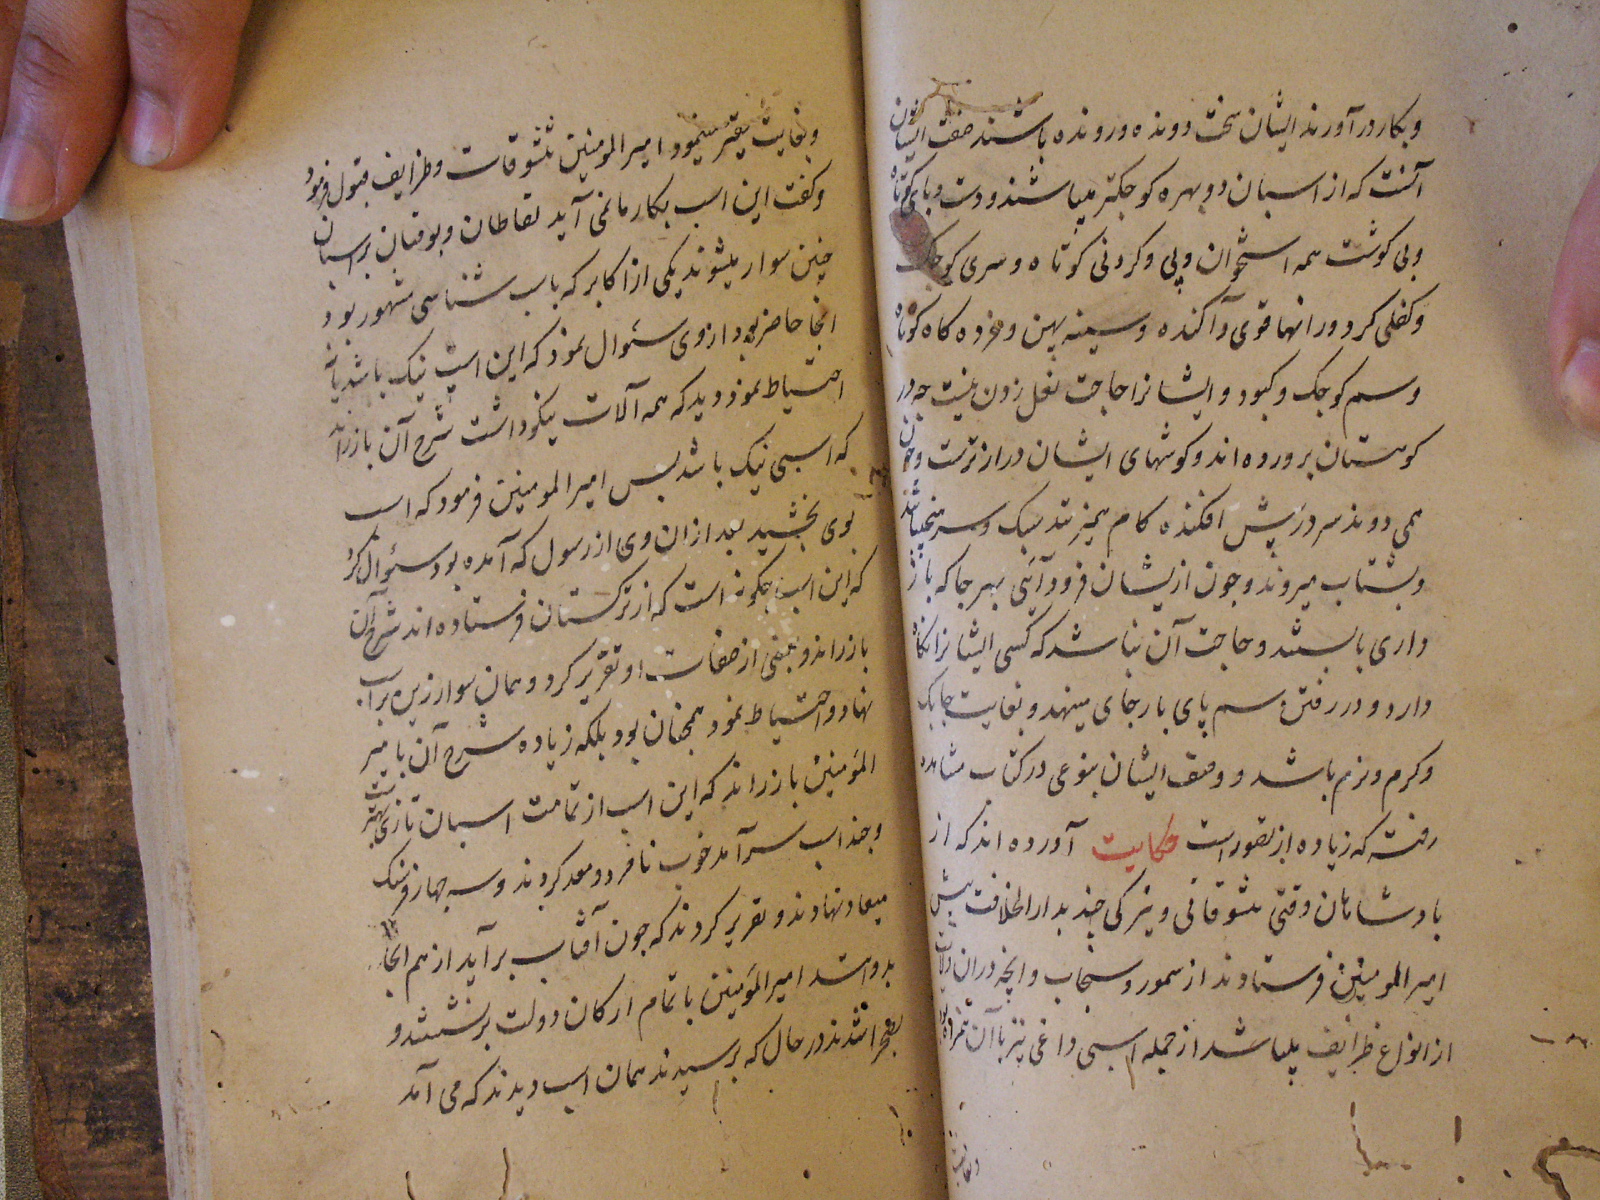 و بکار در آورند ایشان سخت دونده و رونده باشند صفت ایشان
آنست که از اسبان دو بهره کوچکتر میباشند و دست و پای کوتاه
و بی کوشت همه استخوان و پی و کردنی کوتاه و سری کوچک
و کفلی کرد و رانها قوی و آکنده و سینه پهن و خرده کاه کوتاه
و سم کوچک و کبود و ایشانرا حاجت نعل زدن نیست چه در
کوهستان پرورده اند و کوشهای ایشان درازترست و چون
همی دوند سر در پیش افکنده کام میزنند سبک و سر میجنبانند
و بشتاب میروند و چون ازیشان فرود آئی بهر جا که باز
داری بایستند و حاجت آن نباشد که کسی ایشانرا نکاه
دارد و در رفتن سم پای بار جای مینهد و بغایت چابک
و کرم و نرم باشد و وصف ایشان بنوعی در کتاب مشاهده
رفته که زیاده از تصور است حکایت آورده اند که از
پادشاهان وقتی تنشوقاتی و تبرکی چند بدار الخلافت پیش
امیر المومنین فرستادند از سمور و سنجاب و آنچه در ان ولایت
از انواع ظرایف میباشد از جمله اسبی داغی نیز با آن همراه بود
وبغایت
وبغایت حقیر مینمود امیر المومنین تنشوقات و ظرایف قبول فرمود
و کفت این اسب بکار ما نمی آید نفاطان و بوقیان بر اسبان
چنین سوار میشوند یکی از اکابر که باسب شناسی مشهور بود
آنجا حاضر بود از وی سئوال نمود که این اسب نیک باشد یا نه
احتیاط نمود دید که همه آلات نیکو داشت شرح آن باز راند
که اسبی نیک باشد پس امیر المومنین فرمود که اسب
بوی بخشید بعد ازان وی از رسول که آمده بود سئوال کرد
که این اسب چکونه است که از ترکستان فرستاده اند شرح آن
باز راند و بعضی از صفات او تقریر کرد و همان سوار زین بر اسب
نهاد و احتیاط نمود همچنان بود بلکه زیاده شرح آن بامیر
المؤمنین باز راند که این اسب از تمامت اسبان تازی بهترست
و چند اسب سرآمد خوب نامزد و معد کردند و سه چهار فرسنک
میعاد نهادند و تقریر کردند که چون آفتاب برآید از هم آنجا
بدوانند امیر المؤمنین با تمام ارکان دولت برنشستند و
بصحرا شدند در حال که برسیدند همان اسب دیدند که می آمد